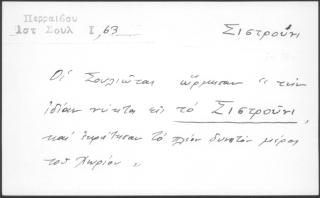 Περραιβου
Ιστ Σουλ Ι, 63
Σιστροῦνι
Οἱ Σουλιῶται ὥρμησαν « τὴν
ἰδίαν νύκτα εἰς τὸ Σιστροῦνι,
καὶ ἐκράτησαν τὸ πλέον δυνατὸν μέρος
τοῦ χωρίου »